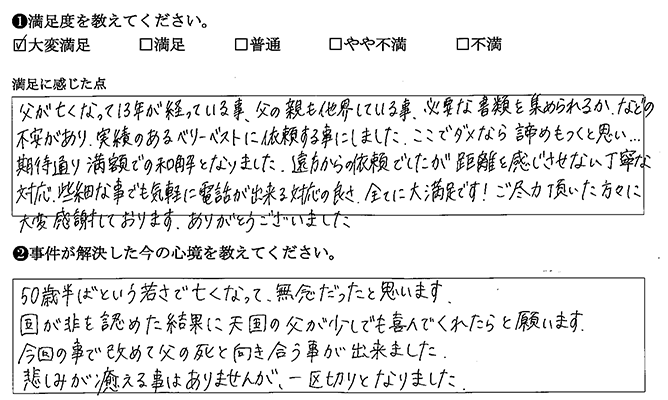 ❶満足度を教えてください。
☑大変満足 □満足 □普通 □やや不満 □不満
満足に感じた点
父が亡くなって13年が経っている事、父の親も他界している事、必要な書類を集められるか、などの
不安があり、実績のあるベリーベストに依頼する事にしました。ここでダメなら諦めもつくと思い…
期待通り満額での和解となりました。遠方からの依頼でしたが距離を感じさせない丁寧な
対応、些細な事でも気軽に電話が出来る対応の良さ、全てに大満足です!ご尽力頂いた方々に
大変感謝しております。ありがとうございました
❷事件が解決した今の心境を教えてください。
50歳半ばという若さで亡くなって、無念だったと思います。
国が非を認めた結果に天国の父が少しでも喜んでくれたらと願います。
今回の事で改めて父の死と向き合う事が出来ました。
悲しみが癒える事はありませんが、一区切りとなりました。